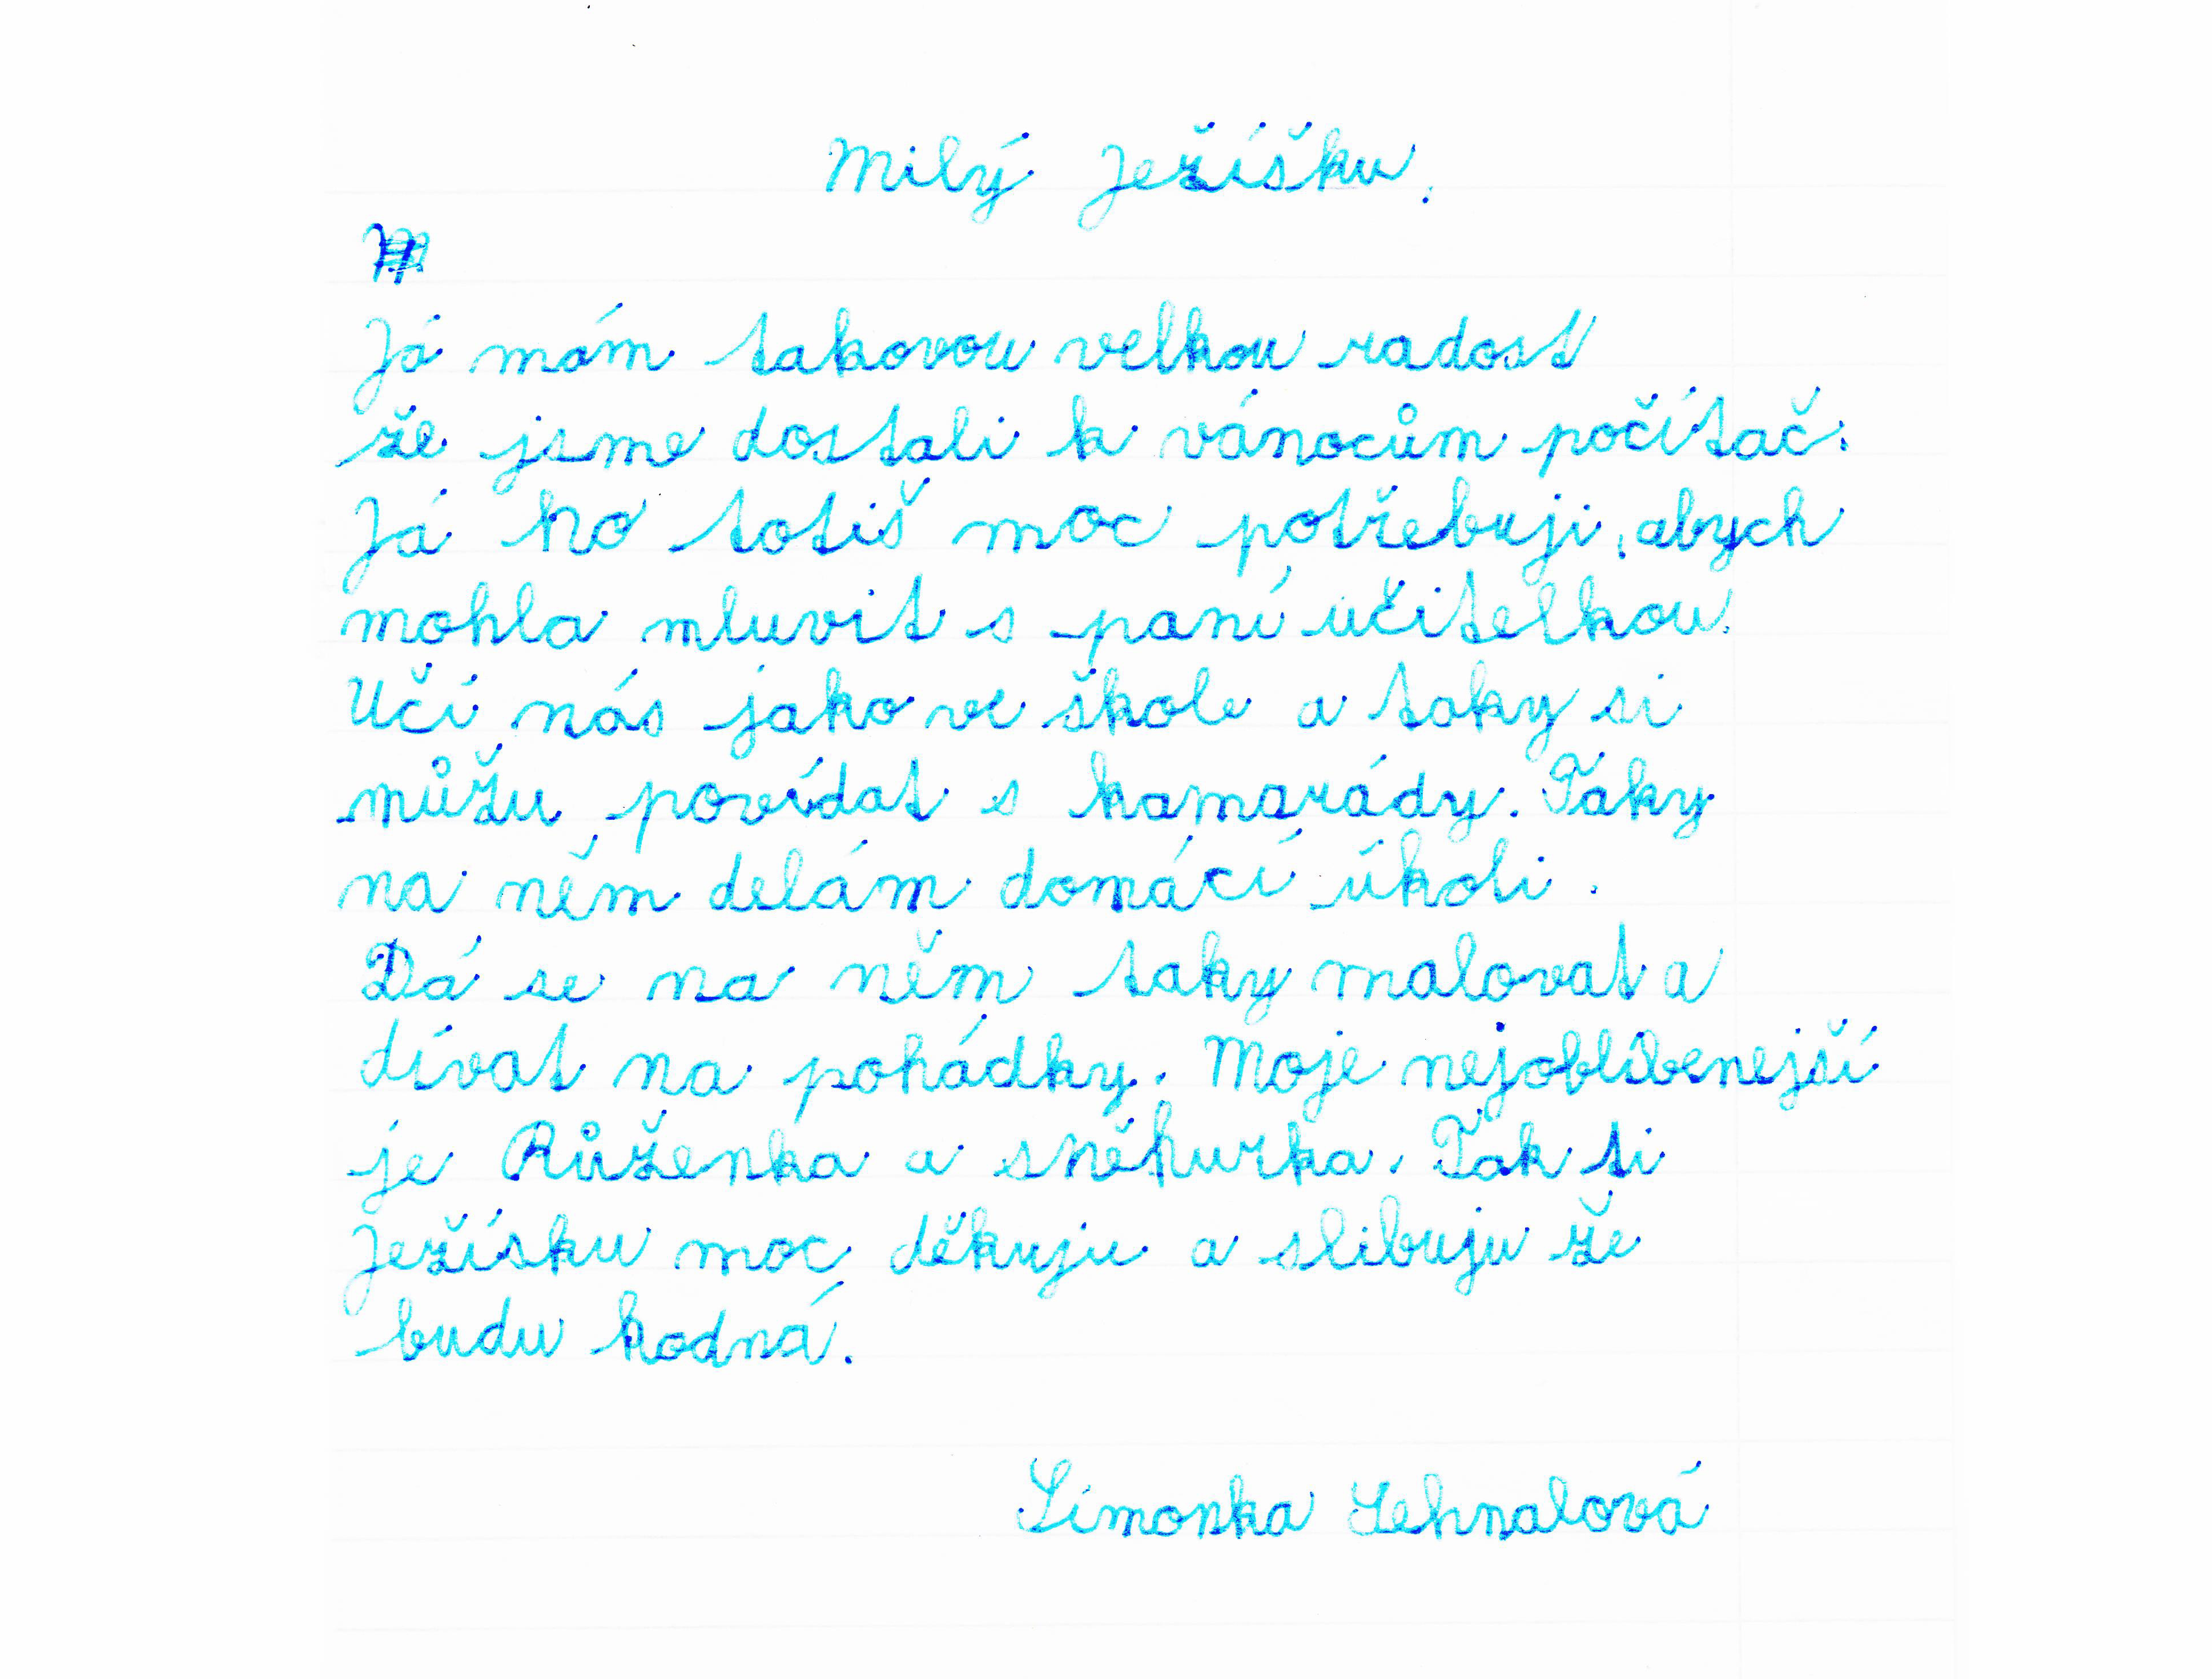 Milý Ježíšku,
Já mám takovou velkou radost
že jsme dostali k vánocům počítač.
Já ho totiš moc potřebuji, abych
mohla mluvit s paní učitelkou.
Učí nás jako ve škole a taky si
můžu povídat s kamarády. Taky
na něm delám domácí úkoli.
Dá se na něm taky malovat a
dívat na pohádky. Moje nejoblíbenejší
je Růženka a sněhurka. Tak ti
Ježísku moc děkuju a slibuju že
budu hodná.
Simonka Sehnalová